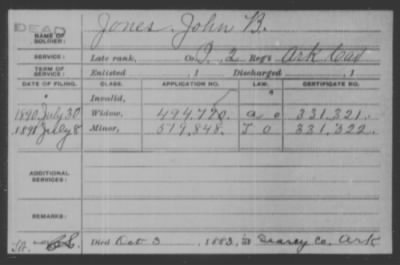 DEAD
NAME OF SOLDIER: Jones, John B.
SERVICE: Late rank, Co. I, 2 Reg't Ark Cav
TERM OF SERVICE: Enlisted , 1 Discharged , 1
DATE OF FILING. CLASS. APPLICATION NO. LAW. CERTIFICATE NO.
Invalid,
1890 July 30 Widow, 494,770 a o 331,321.
1891 July 8 Minor, 519,848. J o 331,322.
ADDITIONAL SERVICES:
REMARKS:
Died Oct 3, 1883, at Searcy Co. Ark